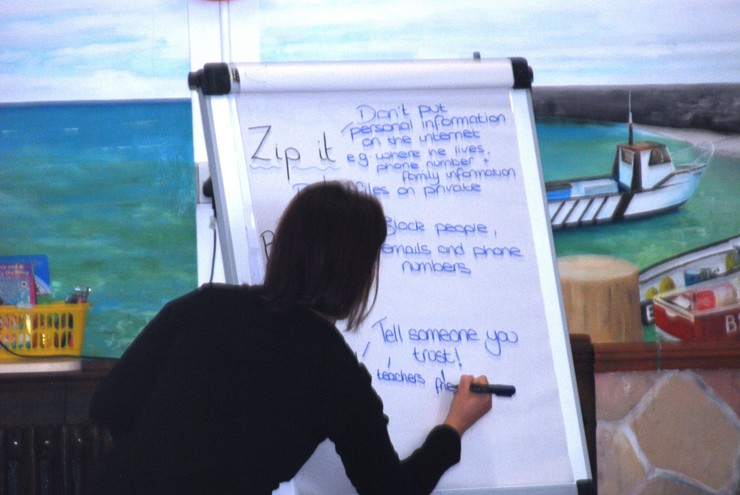 Don't put
personal information
on the internet
Zip it
eg where he lives,
phone number +
family information
files on private
Block people,
emails and phone
numbers
Tell someone you
trust!
teachers